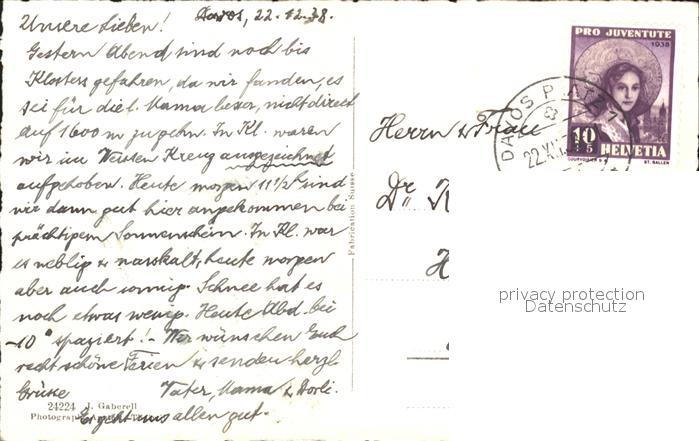 Davos, 22.12.38.
Unsere Lieben!
Gestern Abend sind noch bis
Klosters gefahren, da wir fanden, es
sei für die l. Mama besser, nicht direct
auf 1600 m zu gehn. In Kl. waren
wir im Weissen Kreuz ausgezeichnet
aufgehoben. Heute morgen 11½ sind
wir dann gut hier angekommen bei
prächtigem Sonnenschein. In Kl. war
es neblig & nasskalt, heute morgen
aber auch sonnig. Schnee hat es
noch etwas wenig. Heute Abd. bei
-10° spaziert! - Wir wünschen Euch
recht schöne Ferien & senden herzl.
Grüsse Vater, Mama & Dorli.
Es geht uns allen gut.
24224 J. Gaberell
Photograph
Fabrication Suisse
Herrn & Frau
Dr.
PRO JUVENTUTE
1938
10
5
HELVETIA
COURVOISIER
ST. GALLEN
DAVOS PLATZ 1
22.XII.
privacy protection
Datenschutz